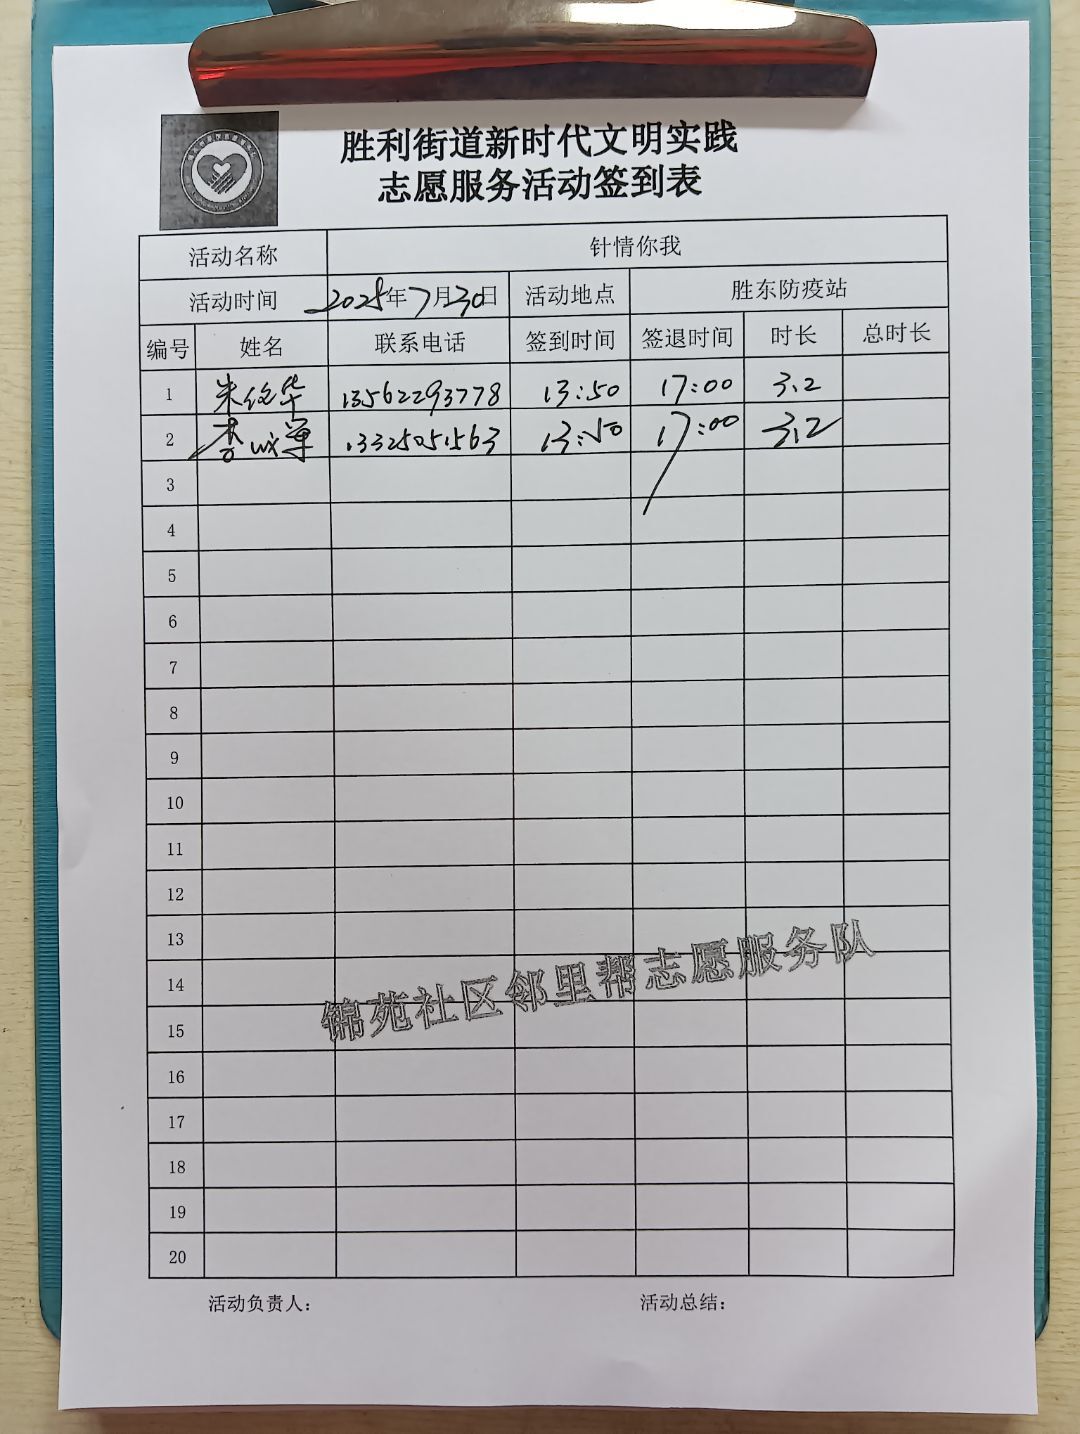 胜利街道新时代文明实践
志愿服务活动签到表
活动名称 针情你我
活动时间 2025年7月30日 活动地点 胜东防疫站
编号 姓名 联系电话 签到时间 签退时间 时长 总时长
1 朱俊华 13562293778 13:50 17:00 3.2
2 李 13325051563 13:50 17:00 3.2
3
4
5
6
7
8
9
10
11
12
13
14
锦苑社区邻里帮志愿服务队
15
16
17
18
19
20
活动负责人: 活动总结: